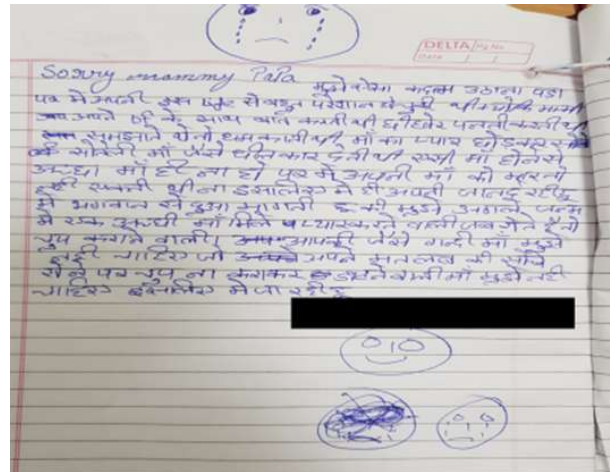 DELTA Pg No.
Date / /
Sorry mommy Papa मुझे ऐसा कदम उठाना पडा
पर मे अपनी इस से बहुत परेशान हो चुकी थी
अपने bf के साथ बात करती थी
समझाते थे तो धमकाती थी माँ का प्यार छोडकर
सोतेली माँ जैसे धीतकार देती थी एसी माँ होनेसे
अच्छा माँ ही ना हो पर मे अपनी माँ को
नही सकती थी ना इसलिए मे ही अपनी जान दे रही हू
मे भगवान से दुआ मागती हू की मुझे अगले जन्म
मे एक अच्छी माँ मिले प्यार करने वाली जब रोते है तो
चुप कराने वाली। आपकी जैसे गन्दी माँ मुझे
नही चाहिए जो अपने मतलब की सोचे
रोने पर चुप ना कराकर डाटने वाली माँ मुझे नही
चाहिए इसलिए मे जा रही हू